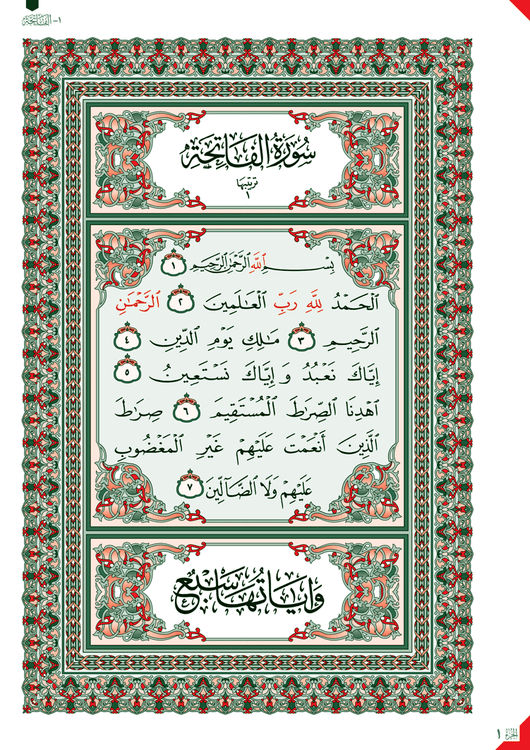 ١- الفَاتِحَة
سُورَةُ الفَاتِحَةِ
تَرْتِيبُهَا
١
بِسْمِ اللَّهِ الرَّحْمَٰنِ الرَّحِيمِ ١
الْحَمْدُ لِلَّهِ رَبِّ الْعَٰلَمِينَ ٢ الرَّحْمَٰنِ
الرَّحِيمِ ٣ مَٰلِكِ يَوْمِ الدِّينِ ٤
إِيَّاكَ نَعْبُدُ وَإِيَّاكَ نَسْتَعِينُ ٥
اَهْدِنَا الصِّرَٰطَ الْمُسْتَقِيمَ ٦ صِرَٰطَ
الَّذِينَ أَنْعَمْتَ عَلَيْهِمْ غَيْرِ الْمَغْضُوبِ
عَلَيْهِمْ وَلَا الضَّآلِّينَ ٧
وَآيَاتُهَا سَبْعٌ
الجُزْءُ ١